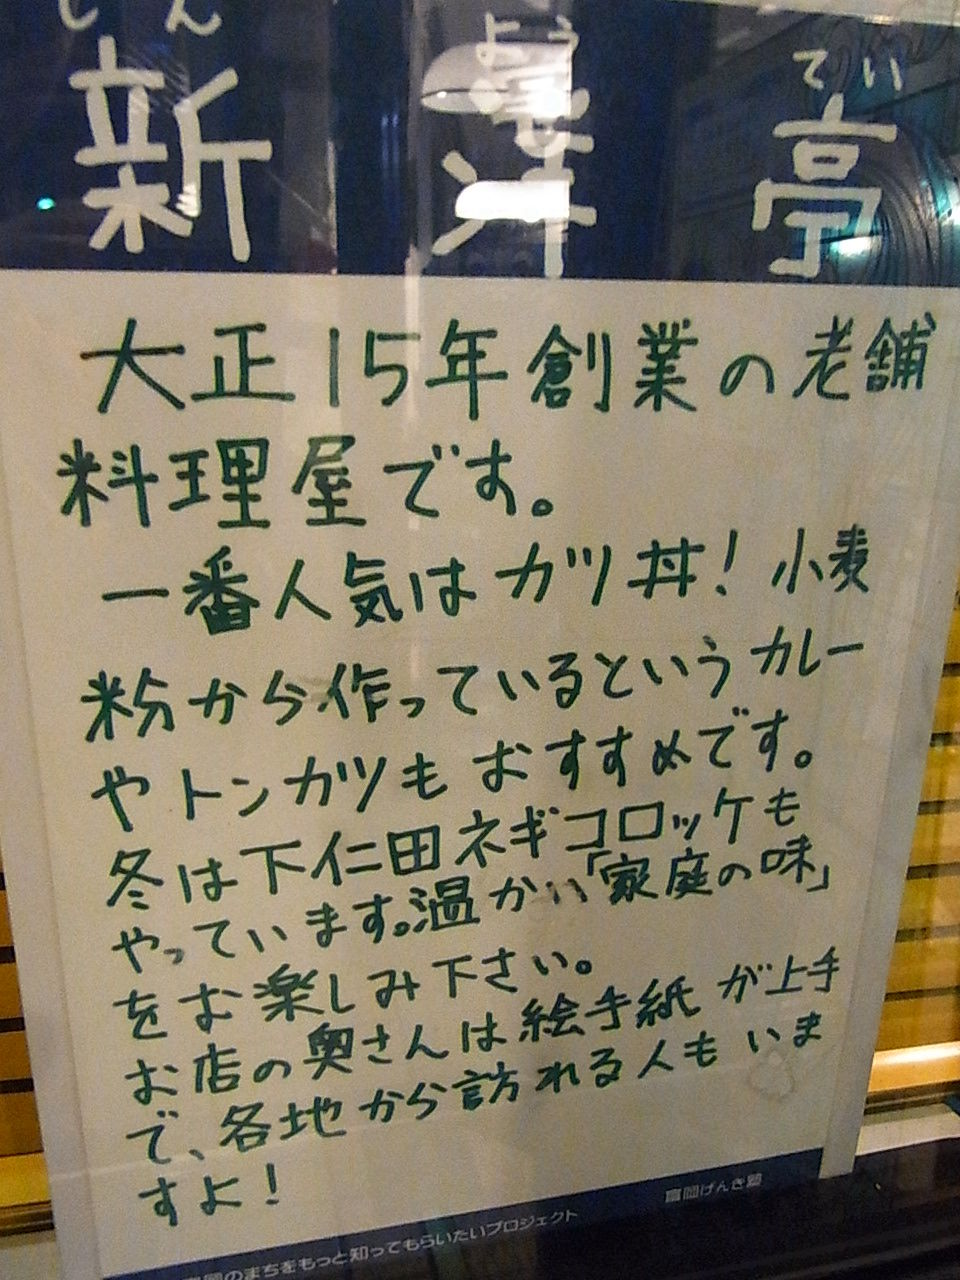 しん よう てい
新洋亭
大正15年創業の老舗
料理屋です。
一番人気はカツ丼！小麦
粉から作っているというカレー
やトンカツもおすすめです。
冬は下仁田ネギコロッケも
やっています。温かい「家庭の味」
をお楽しみ下さい。
お店の奥さんは絵手紙が上手
で、各地から訪れる人もいま
すよ！
富岡げんき塾
岡のまちをもっと知ってもらいたいプロジェクト